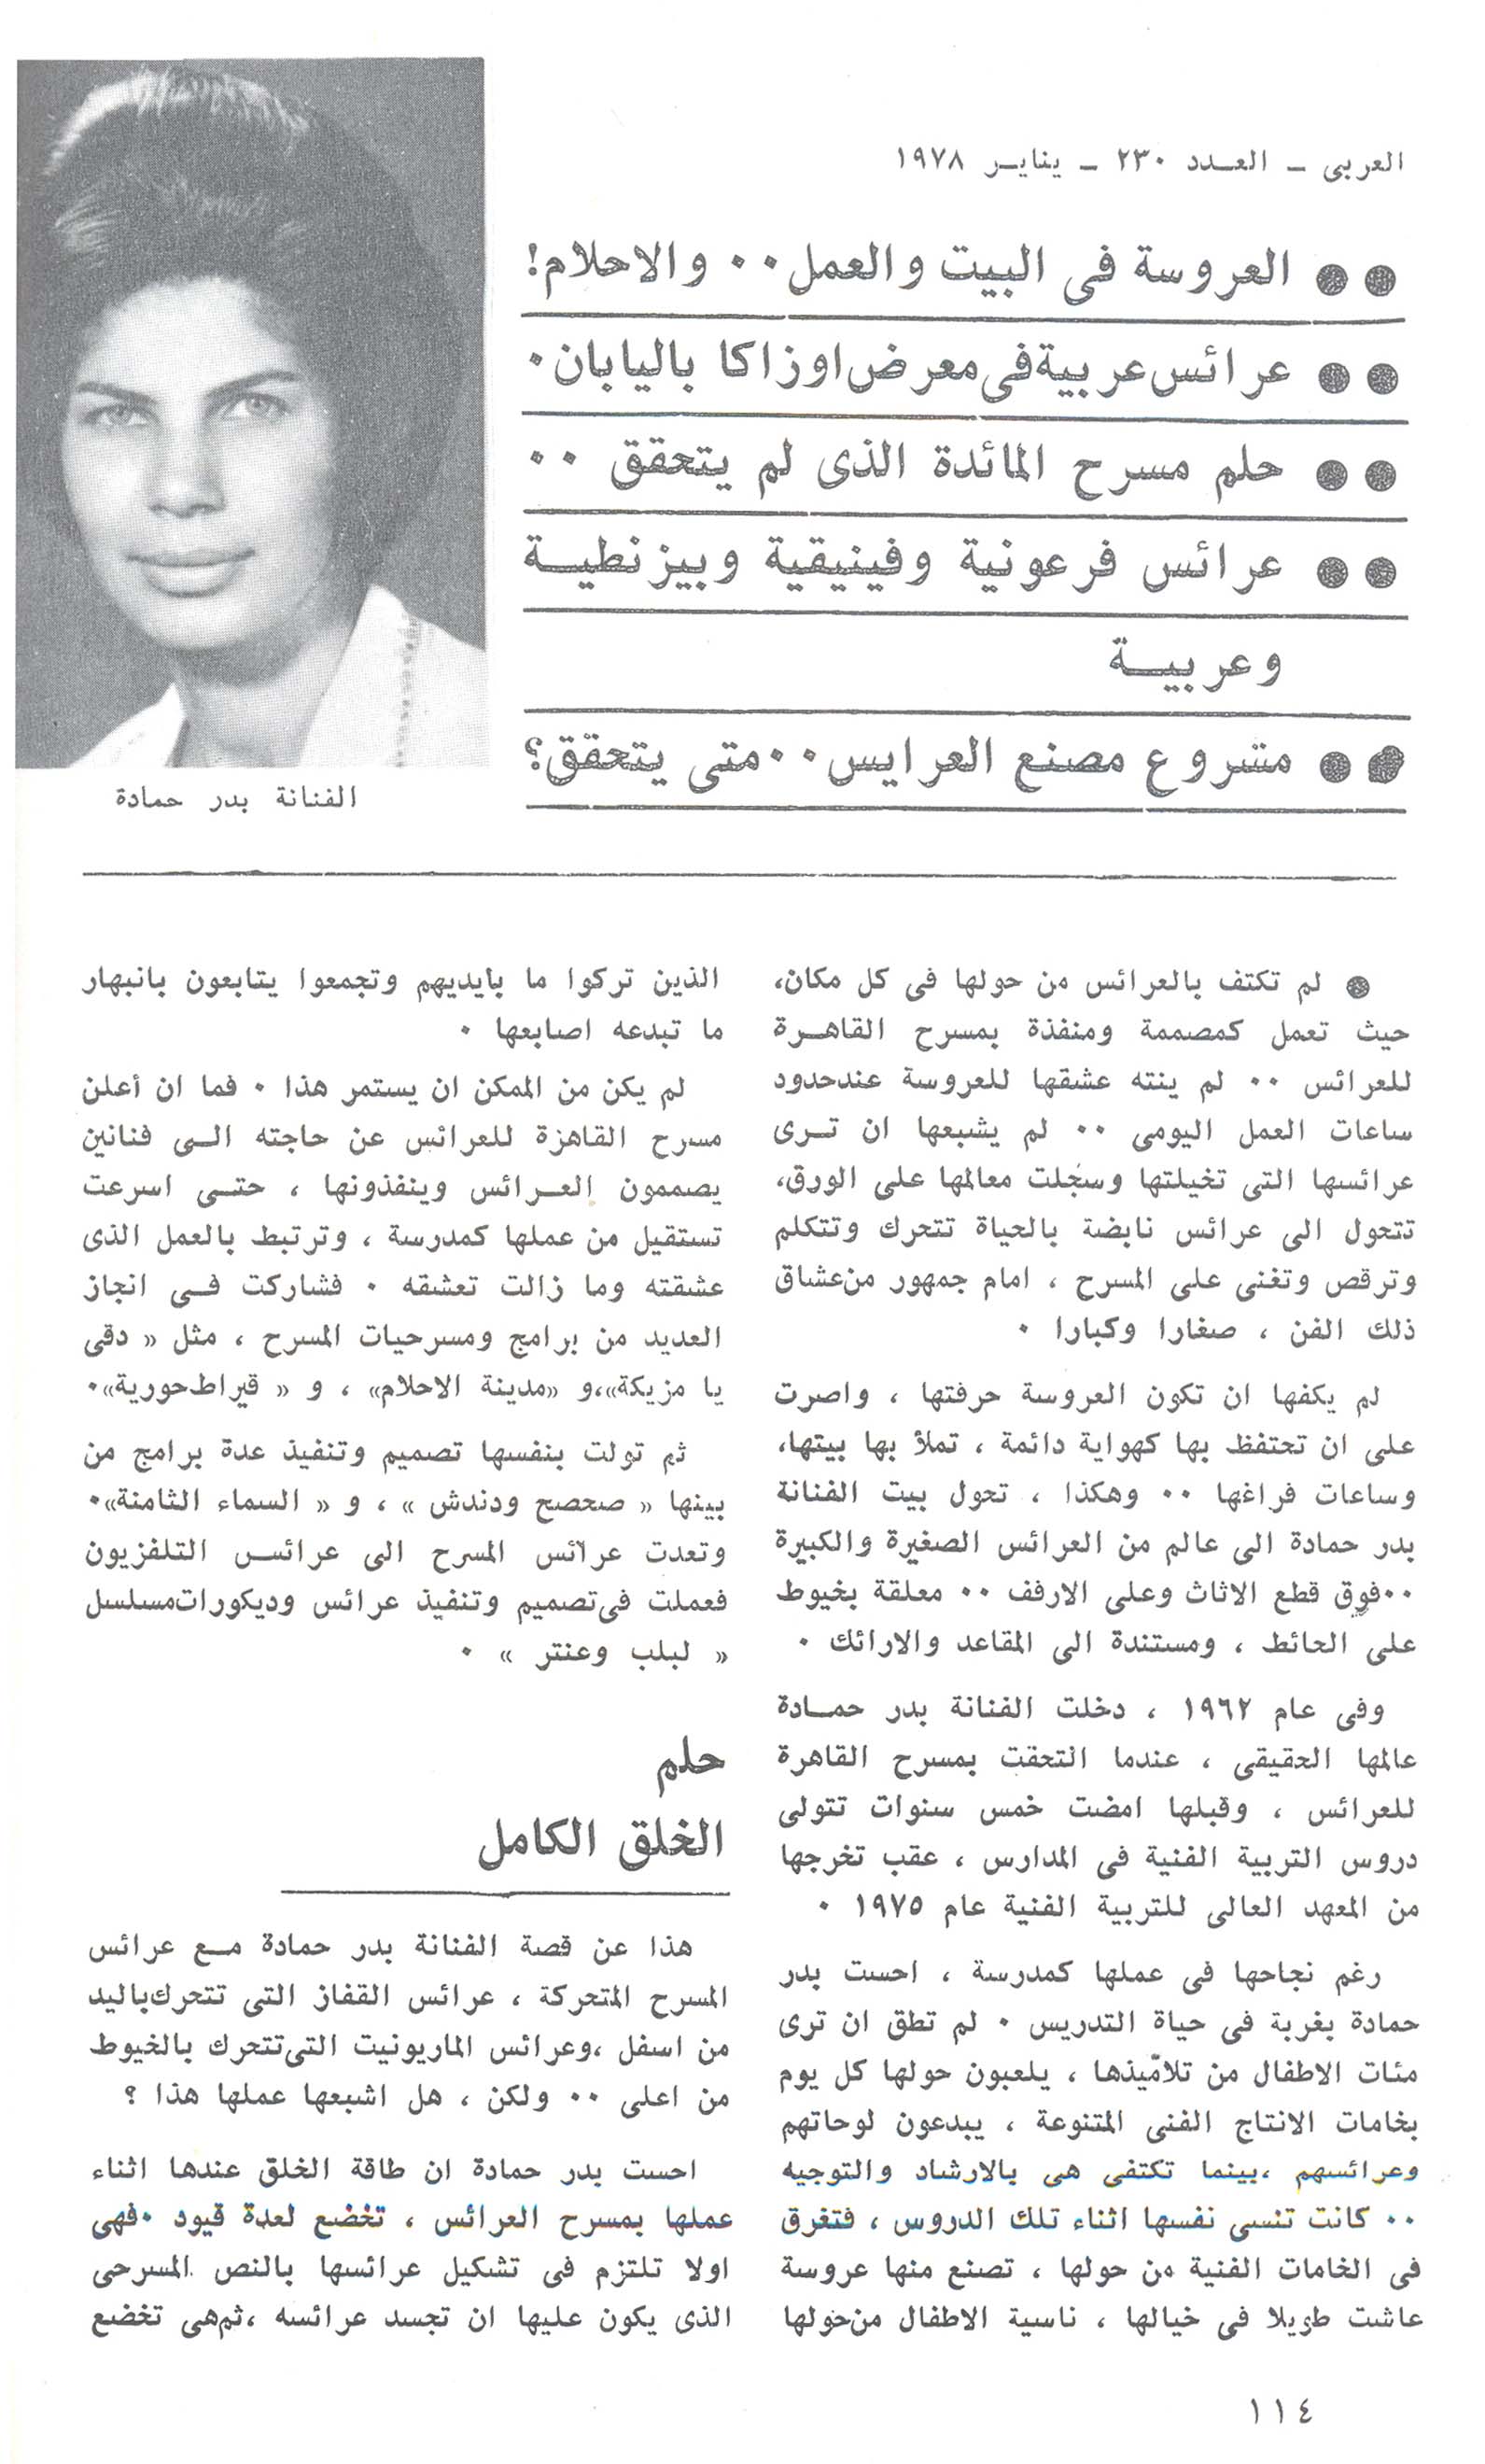 العربى – العـدد ٢٣٠ – ينايـر ١٩٧٨
●● العروسة فى البيت والعمل ٠٠ والاحلام!
●● عرائس عربية فى معرض اوزاكا باليابان ٠
●● حلم مسرح المائدة الذى لم يتحقق ٠٠
●● عرائس فرعونية وفينيقية وبيزنطيـة
وعربيـة
●● مشروع مصنع العرايس ٠٠ متى يتحقق؟
الفنانة بدر حمادة
● لم تكتف بالعرائس من حولها فى كل مكان،
حيث تعمل كمصممة ومنفذة بمسرح القاهـرة
للعرائس ٠٠ لم ينته عشقها للعروسة عند حدود
ساعات العمل اليومى ٠٠ لم يشبعها ان تـرى
عرائسها التى تخيلتها وسجلت معالمها على الورق،
تتحول الى عرائس نابضة بالحياة تتحرك وتتكلم
وترقص وتغنى على المسرح ، امام جمهور من عشاق
ذلك الفن ، صغارا وكبارا ٠
لم يكفها ان تكون العروسة حرفتها ، واصرت
على ان تحتفظ بها كهواية دائمة ، تملأ بها بيتها،
وساعات فراغها ٠٠ وهكذا ، تحول بيت الفنانة
بدر حمادة الى عالم من العرائس الصغيرة والكبيرة
٠٠ فوق قطع الاثاث وعلى الارفف ٠٠ معلقة بخيوط
على الحائط ، ومستندة الى المقاعد والارائك ٠
وفى عام ١٩٦٢ ، دخلت الفنانة بدر حمـادة
عالمها الحقيقى ، عندما التحقت بمسرح القاهرة
للعرائس ، وقبلها امضت خمس سنوات تتولى
دروس التربية الفنية فى المدارس ، عقب تخرجها
من المعهد العالى للتربية الفنية عام ١٩٧٥ ٠
رغم نجاحها فى عملها كمدرسة ، احست بدر
حمادة بغربة فى حياة التدريس ٠ لم تطق ان ترى
مئات الاطفال من تلاميذها ، يلعبون حولها كل يوم
بخامات الانتاج الفنى المتنوعة ، يبدعون لوحاتهم
وعرائسهم ، بينما تكتفى هى بالارشاد والتوجيه
٠٠ كانت تنسى نفسها اثناء تلك الدروس ، فتغرق
فى الخامات الفنية من حولها ، تصنع منها عروسة
عاشت طويلا فى خيالها ، ناسية الاطفال من حولها
الذين تركوا ما بايديهم وتجمعوا يتابعون بانبهار
ما تبدعه اصابعها ٠
لم يكن من الممكن ان يستمر هذا ٠ فما ان أعلن
مسرح القاهرة للعرائس عن حاجته الـى فنانين
يصممون العـرائس وينفذونها ، حتـى اسرعت
تستقيل من عملها كمدرسة ، وترتبط بالعمل الذى
عشقته وما زالت تعشقه ٠ فشاركت فـى انجاز
العديد من برامج ومسرحيات المسرح ، مثل « دقى
يا مزيكة»،و «مدينة الاحلام» ، و « قيراط حورية»٠
ثم تولت بنفسها تصميم وتنفيذ عدة برامج من
بينها « صحصح ودندش » ، و « السماء الثامنة»٠
وتعدت عرائس المسرح الى عرائس التلفزيون
فعملت فى تصميم وتنفيذ عرائس وديكورات مسلسل
« لبلب وعنتر » ٠
حلم
الخلق الكامل
هذا عن قصة الفنانة بدر حمادة مـع عرائس
المسرح المتحركة ، عرائس القفاز التى تتحرك باليد
من اسفل ،وعرائس الماريونيت التى تتحرك بالخيوط
من اعلى ٠٠ ولكن ، هل اشبعها عملها هذا ؟
احست بدر حمادة ان طاقة الخلق عندها اثناء
عملها بمسرح العرائس ، تخضع لعدة قيود ٠ فهى
اولا تلتزم فى تشكيل عرائسها بالنص المسرحى
الذى يكون عليها ان تجسد عرائسه ، ثم هى تخضع
١١٤